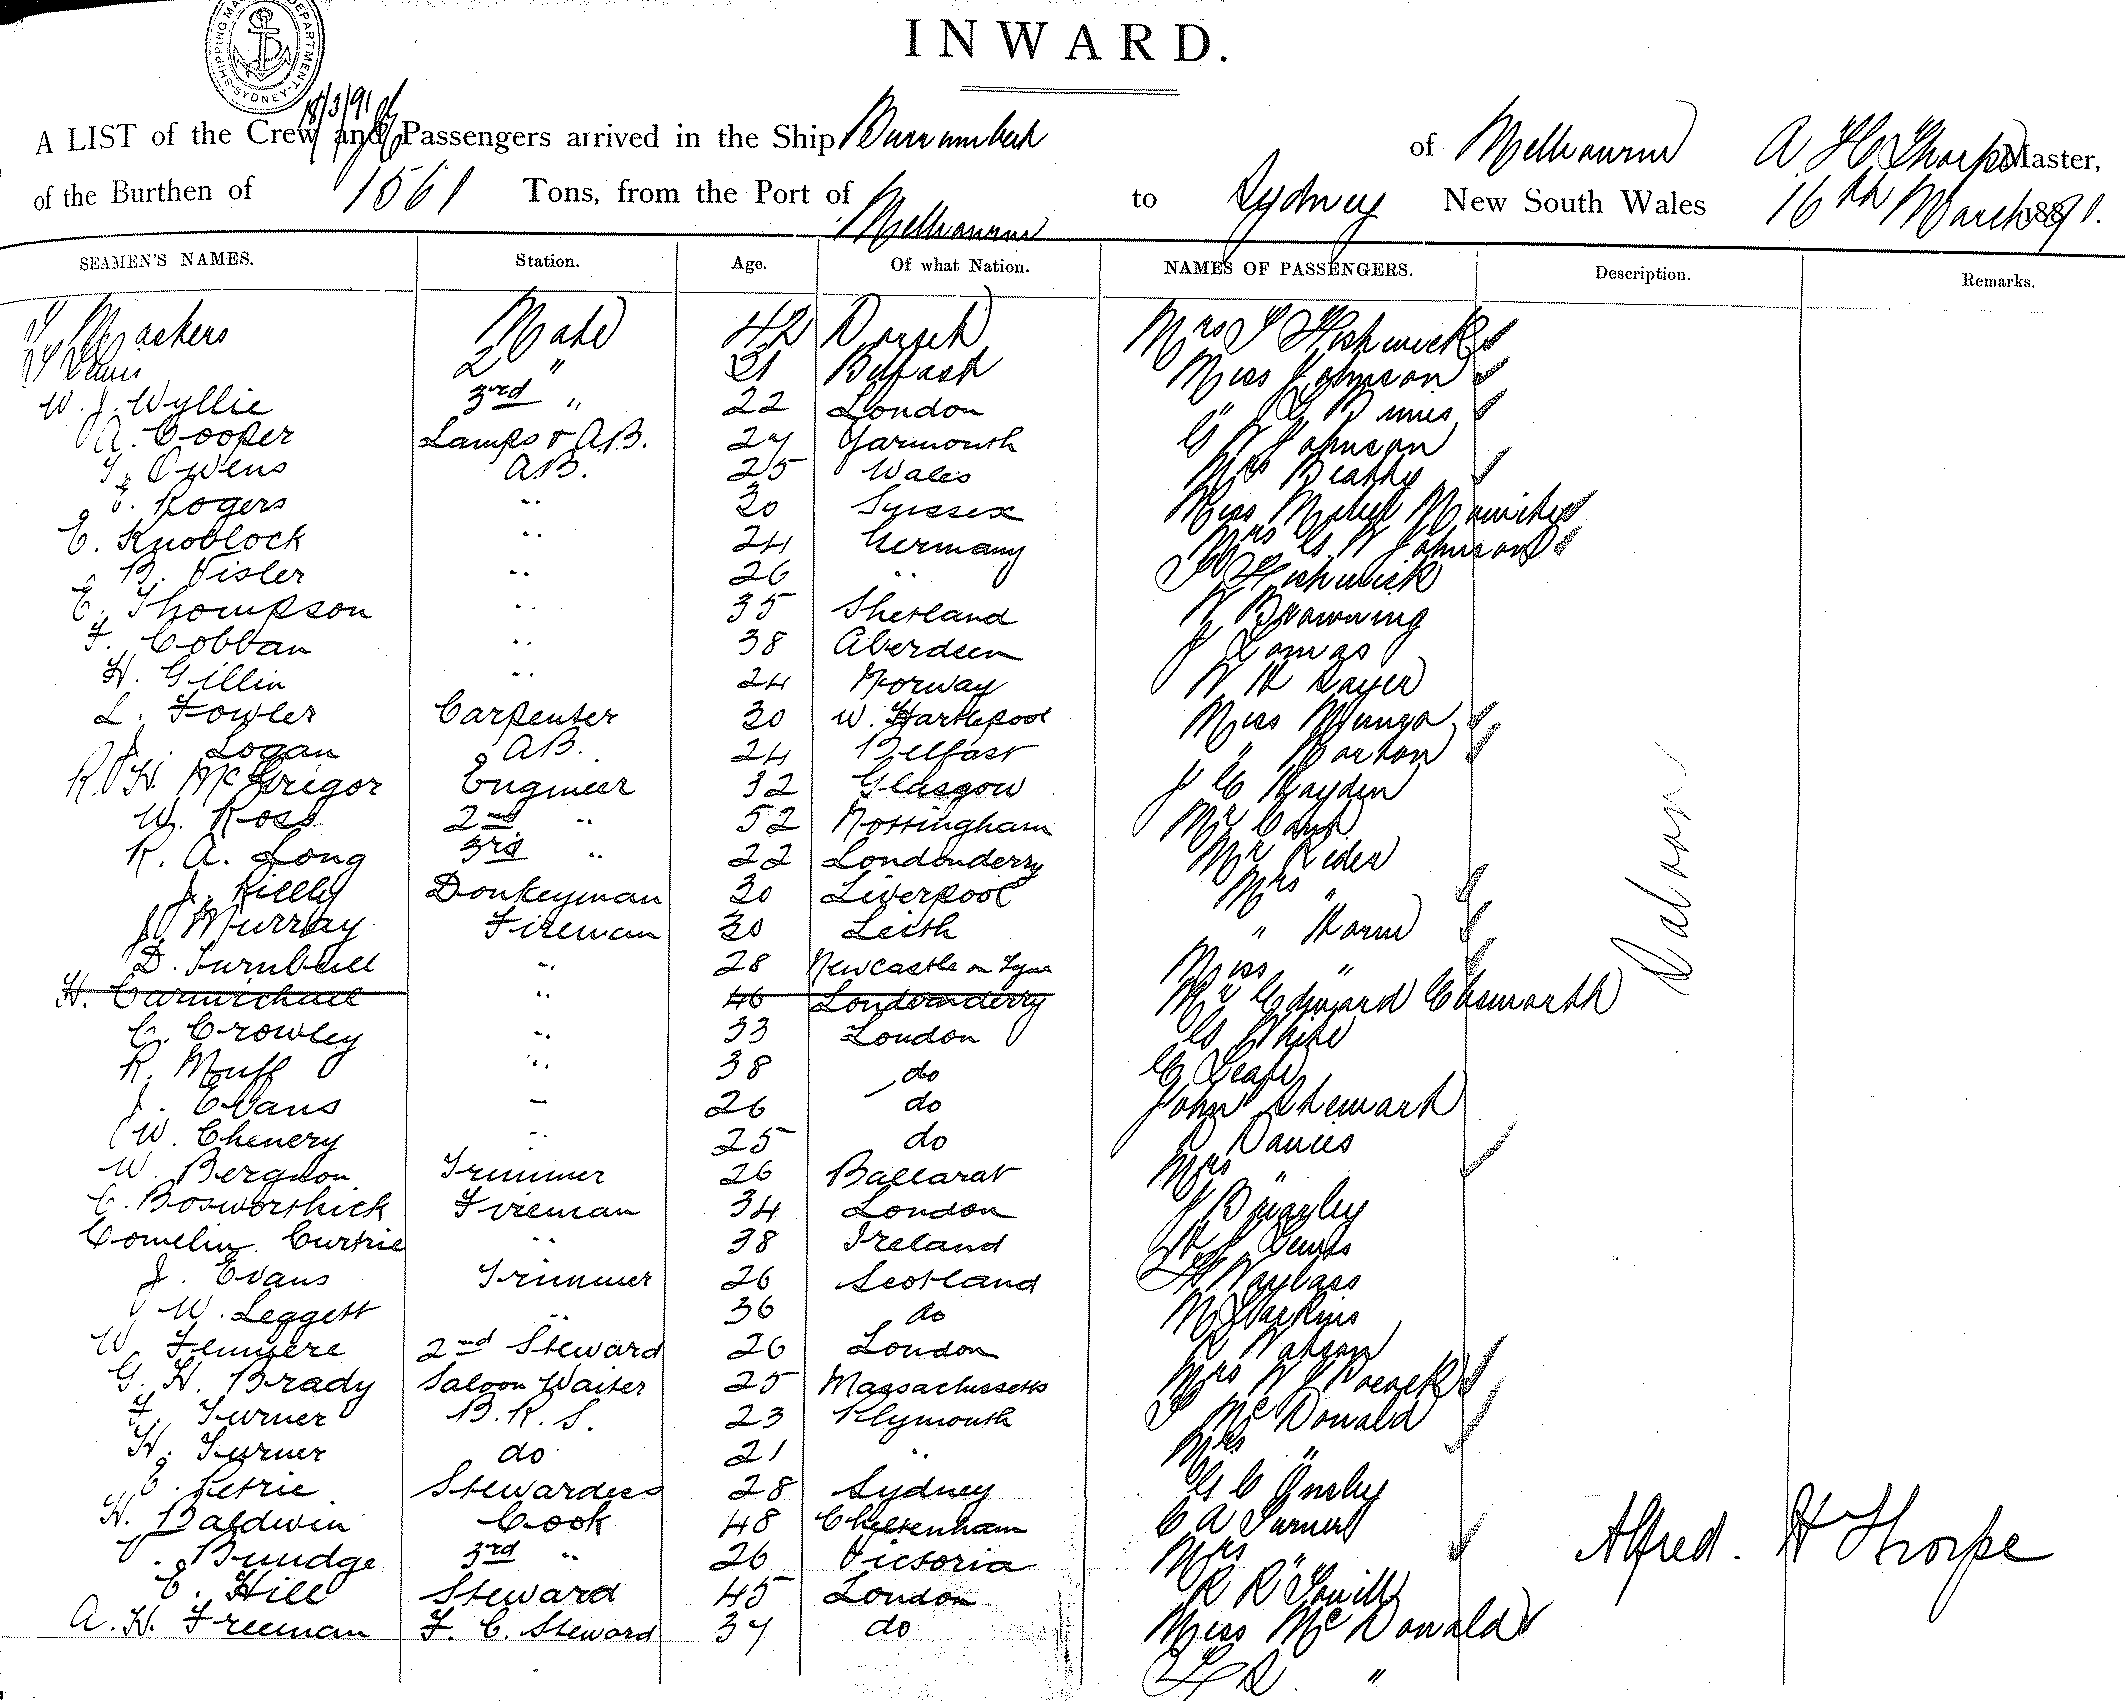 INWARD.
SHIPPING MA DEPARTMENT SYDNEY
18/3/91
A LIST of the Crew and Passengers arrived in the Ship Burrumbeet of Melbourne A H Thorpe Master,
of the Burthen of 1561 Tons, from the Port of Melbourne to Sydney New South Wales 16th March 1891.
SEAMEN'S NAMES. Station. Age. Of what Nation. NAMES OF PASSENGERS. Description. Remarks.
Mate 42 Dorset Mrs J Fishwick
2 " 21 Belfast Miss Johnson
W. J. Wyllie 3rd " 22 London " L Binnie
A. Cooper Lamps & A.B. 27 Yarmouth G W Johnson
T. Owens A.B. 25 Wales Mrs Beathy
E. Rogers " 30 Sussex Miss Mabel
E. Knoblock " 24 Germany Mrs G W Johnson
B. Visler " 26 " Fishwick
E. Thompson " 35 Shetland W Browning
F. Cobban " 38 Aberdeen J Lomas
H. Gillin " 24 Norway W H Sayer
L. Fowler Carpenter 30 W. Hartlepool Miss Munga
J. Logan A.B. 24 Belfast " Morton
R. H. McGrigor Engineer 32 Glasgow J C Hayden
W. Ross 2nd " 52 Nottingham Mr
R. A. Long 3rd " 22 Londonderry Mr Reder
J. Rielly Donkeyman 30 Liverpool Mrs "
J. Murray Fireman 30 Leith "
D. Turnbull " 28 Newcastle on Tyne Miss "
H. Carmichael " 46 Londonderry Mr Edward Ebsworth
C. Crowley " 33 London G White
R. Muff " 38 do C Leafe
J. Evans " 26 do John Stewart
W. Chenery " 25 do R Davies
W. Bergdon Trimmer 26 Ballarat Mrs "
C. Bosworthick Fireman 34 London J
Cornelius Curtrie " 38 Ireland Lewis
J. Evans Trimmer 26 Scotland
W. Leggett " 36 do M
W. Fenigere 2nd Steward 26 London R Watson
G. H. Brady Saloon Waiter 25 Massachussetts Mrs W J Pocock
F. Turner B.R.S. 23 Plymouth J McDonald
H. Turner do 21 " Mrs "
E. Petrie Stewardess 28 Sydney G C
H. Baldwin Cook 48 Cheltenham C A Turner
Bundge 3rd " 26 Victoria Mrs "
E. Hill Steward 45 London R R
A. H. Freeman F. C. Steward 37 do Miss McDonald
"
Saloon
Alfred. H Thorpe